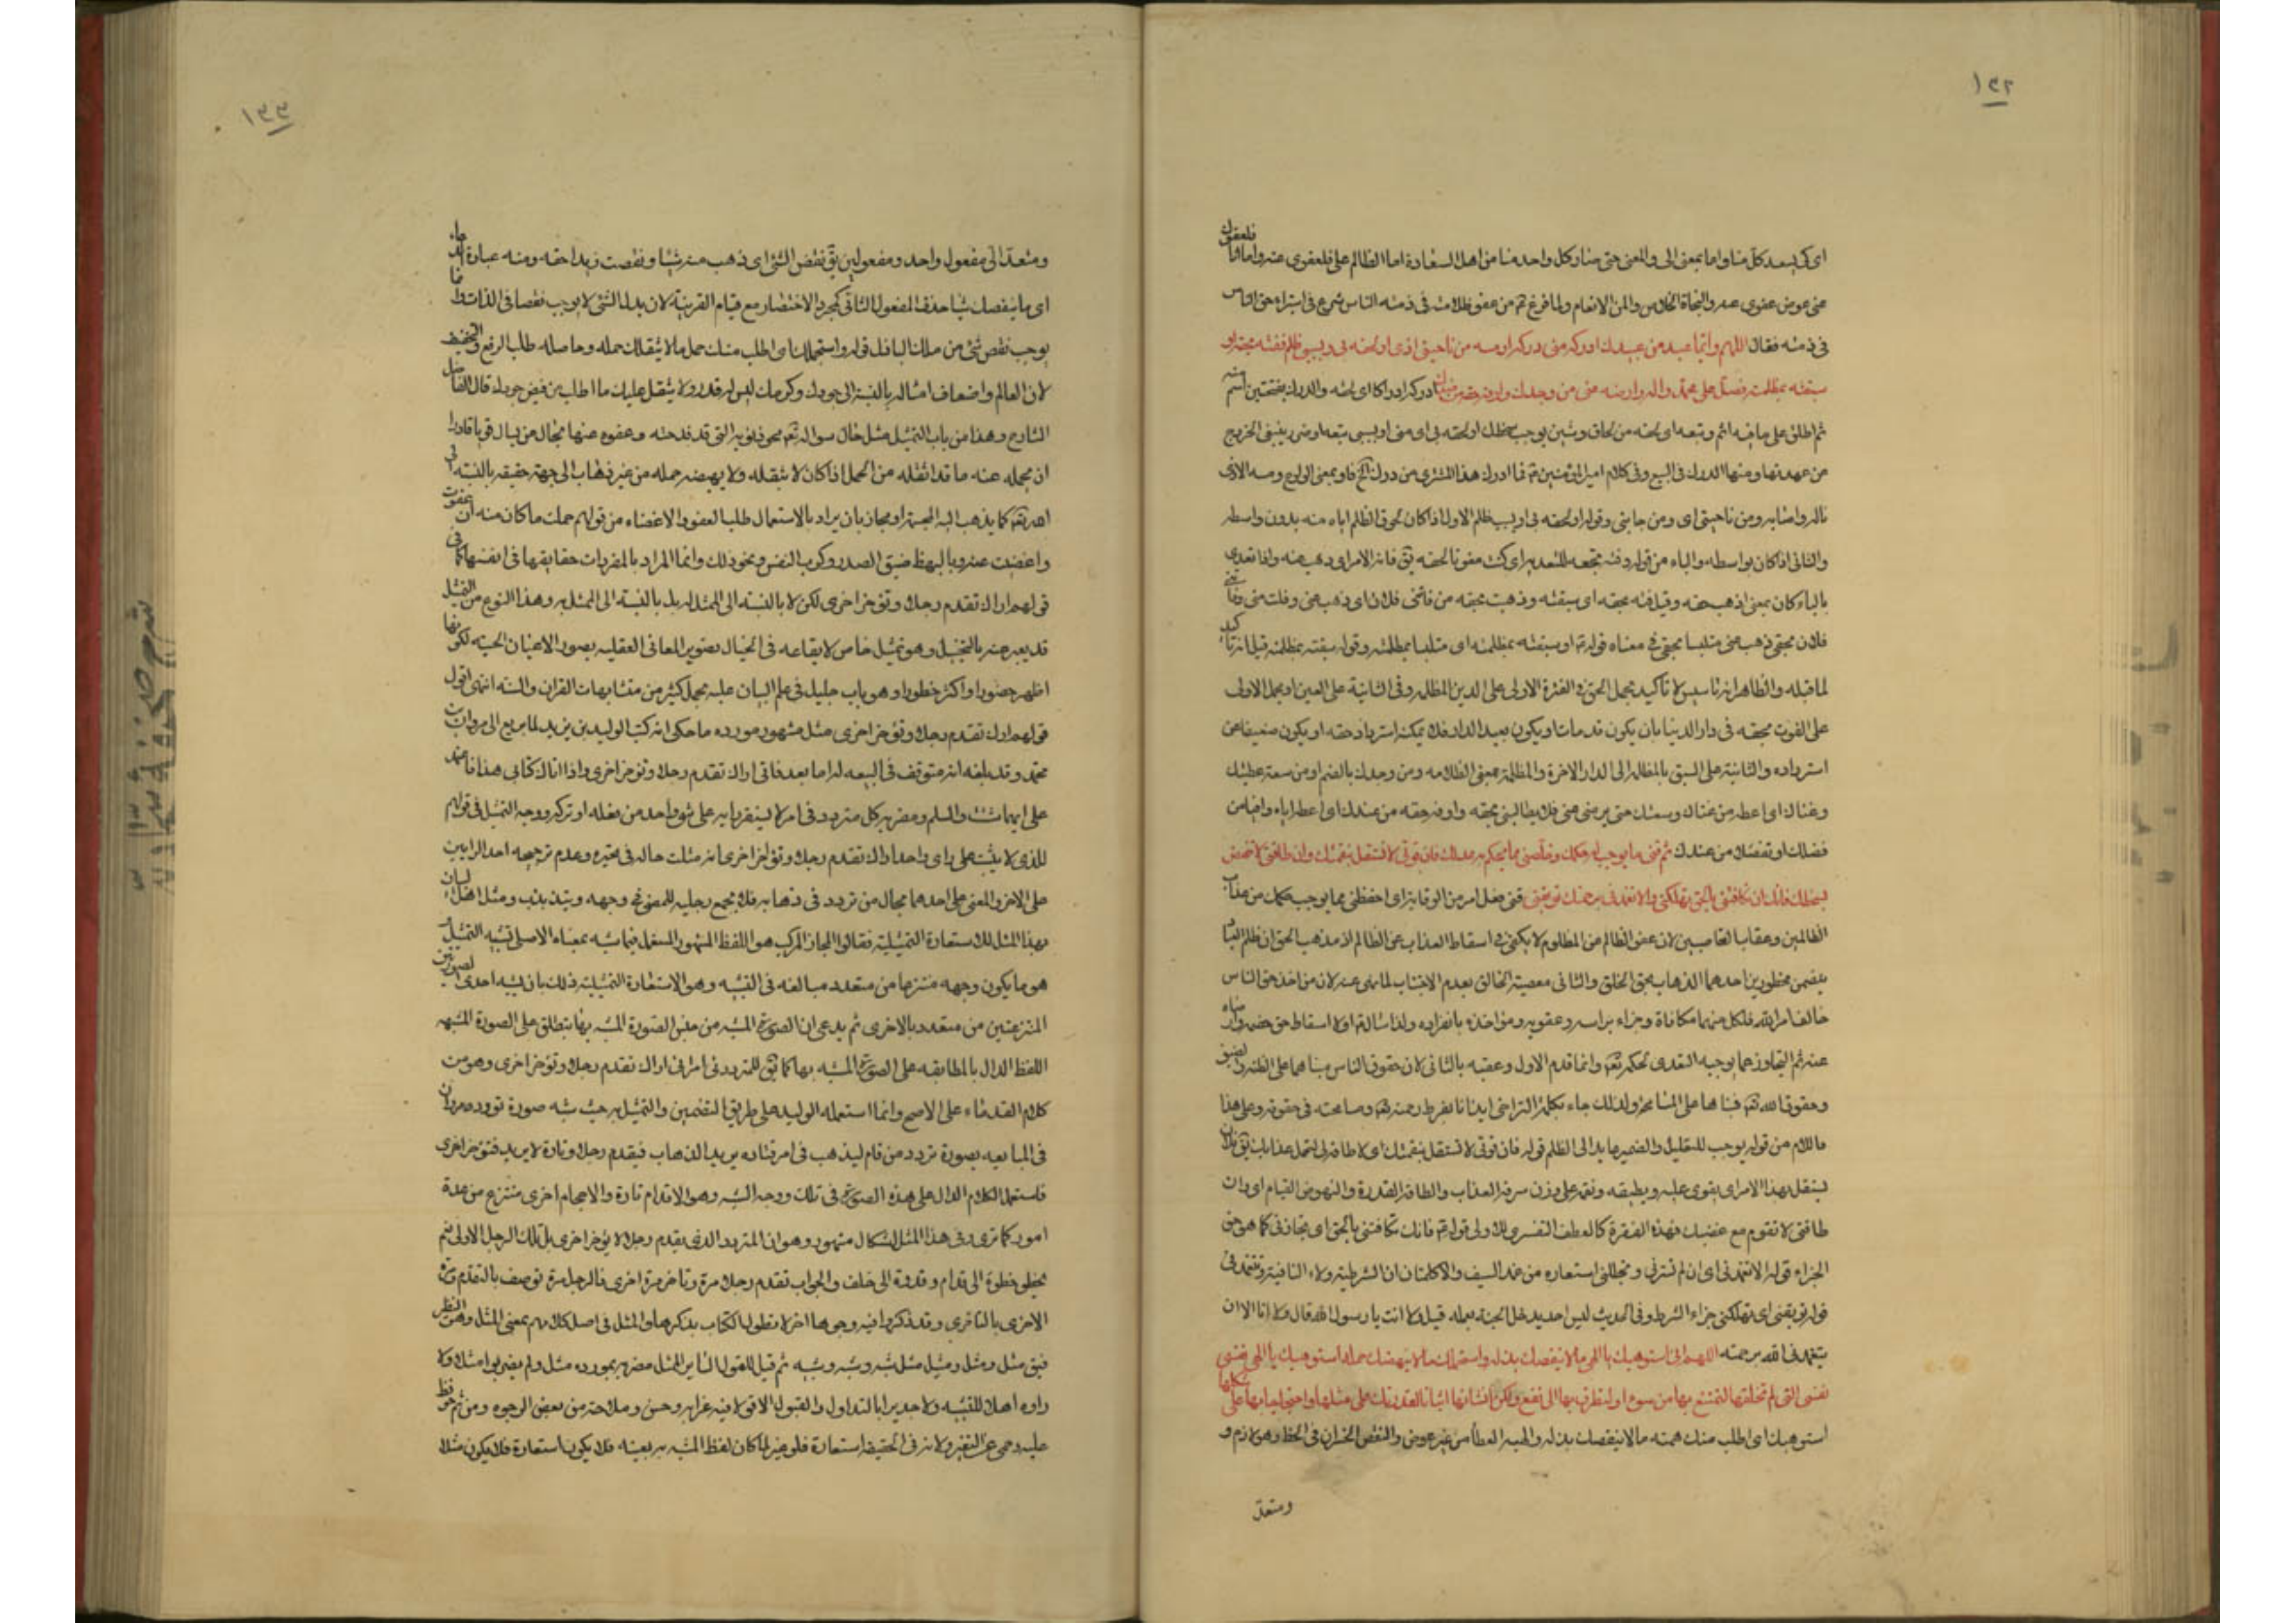 ١٣٢
اى كى يسعد كل منا واما بمعنى الى والمعنى حتى منا وكل واحد منا من اهل السعادة اما الظالم على فلعفوى عنه واما انا فلعفوك
عنى عوض عفوى عنه والنجاة الخلاص والمن الانعام ولما فرغ من عفو ظلامته فى ذمة الناس شرع فى استبراء حق الناس
فى ذمته فقال اللهم وايما عبد من عبيدك ادركه منى درك او مسه من ناحيتى اذى او لحقه بى او بسببى ظلم ففته بحقه او
سبقته بمظلمته فصل على محمد واله وارضه عنى من وجدك واوفه حقه من عندك ادركه ادراكا اى لحقه والدرك بفتحتين اسم منه
ثم اطلق على ما فيه اثم وتبعه اى لحقه من لحاق وشين يوجب سخطك او لحقه بى اى منى او بسببى تبعه او ضرر ينبغى الخروج
من عهدتها ومنها الدرك فى البيع وفى كلام امير المؤمنين فما ادرك هذا المشترى من درك الخ فاو بمعنى الواو ومسه الاذى
ناله واصابه ومن ناحيتى اى ومن جانبى وقوله او لحقه بى او بسببى ظلم الاول اذا كان لحوق الظلم اياه منه بدون واسطة
والثانى اذا كان بواسطة والباء من قوله وفته بحقه للتعدية اى كنت مفوتا لحقه يق فاته الامر اى ذهب عنه واذا تعدى
بالباء كان بمعنى اذهب حقه وقيل فته بحقه اى سبقته وذهبت بحقه من فاتنى فلان اى ذهب عنى وفلت منى وفاتنى
فلان بحقى ذهب عنى متلبسا بحقى فمعناه قوله او سبقته بمظلمته اى متلبسا بمظلمته وقوله سبقته بمظلمته قيل انه تاكيد
لما قبله والظاهر انه تاسيس لا تأكيد بحمل الحق فى الفقرة الاولى على الدين المظلمة وفى الثانية على العين او بحمل الاولى
على الفوت بحقه فى دار الدنيا بان يكون قد مات او يكون بعيد الدار فلا يمكنه استرداد حقه او يكون ضعيفا عن
استرداده والثانية على السبق بالمظالم الى الدار الاخرة والمظلمة بمعنى الظلامه ومن وجدك بالضم او من سعة عطيتك
وغناك اى اعطه من غناك وسعتك حتى يرضى عنى فلا يطالبنى بحقه واوفه حقه من عندك اى اعطه اياه وافيا من
فضلك او تفضلا من عندك ثم قنى ما يوجب له حكمك وخلصنى مما يحكم به عدلك فان قوتى لا تستقل بنقمتك وان طاقتى لا تنهض
بسخطك فانك ان تكافنى بالحق تهلكنى والا تغمدنى برحمتك توبقنى قنى فعل امر من الوقاية اى احفظنى مما يوجب حكمك من عذاب
الظالمين وعقاب الغاصبين لان عفو الظالم من المظلوم لا يكفى فى اسقاط العذاب عن الظالم اذ مذهب الحق ان ظلم العباد
يتضمن محظورين احدهما الذهاب بحق الخلق والثانى معصية الخالق بعدم الاجتناب لما نهى عنه لان من اخذ حق الناس
خالف امر الله فلكل منهما مكافاة وجزاء براسه وعقوبه ومؤاخذه بانفراده ولذا سال اولا اسقاط حق خصمه وارضاه
عنه ثم التجاوز عما يوجبه التعدى لحكمه تع وانما قدم الاول وعقبه بالثانى لان حقوق الناس مبناها على الظنة والضيق
وحقوق الله تع مبناها على المسامحة ولذلك جاء بكلمة التراخى ايذانا بفرط رحمته تع ومسامحته فى حقوقه وعلى هذا
فاللام من قوله يوجب للتعليل والضمير عايد الى الظلم قوله فان قوتى لا تستقل بنقمتك اى لا طاقة لى لتحمل عذابك يق فلان
ليستقل بهذا الامر اى يقوى عليه ويطيقه ونقمة على وزن سرقة العذاب والطاقة القدرة والنهوض القيام اى وان
طاقتى لا تقوم مع غضبك فهذه الفقرة كالعطف التفسيرى للاولى قوله فانك ان تكافنى بالحق اى تجازنى كما هو حق
الجزاء قوله الا تغمدنى اى ان لم تسترنى وتجللنى استعارة من غمد السيف والا كلمتان ان الشرطية ولا النافية وتتغمدنى
قوله توبقنى اى تهلكنى جزاء الشرط وفى الحديث ليس احد يدخل الجنة بعمله قيل ولا انت يا رسول الله قال ولا انا الا ان
يتغمدنى الله برحمته اللهم انى استوهبك يا الهى ما لا ينقصك بذله واستحملك ما لا يبهضك حمله استوهبك يا الهى نفسى
نفسى التى لم تخلقها لتمتنع بها من سوء او لتطرق بها الى نفع ولكن انشاتها اثباتا لقدرتك على مثلها واحتجاجا بها على شكلها
استوهبك اى اطلب منك هبته ما لا ينقصك بذله والهبة العطاء من غير عوض والنقص الخسران فى الحظ وهو لازم و
ومتعد
١٣٣
ومتعد الى مفعول واحد ومفعولين يق نقص الشئ اى ذهب منه شيئا ونقصت زيدا حقه ومنه عبارة الدعاء
اى ما ينقصك شيئا حذف المفعول الثانى لمجرد الاختصار مع قيام القرينة لان بذل الشئ لا يوجب نقصا فى الذات وانما
يوجب نقص شئ من ملك الباذل قوله واستحملك اى اطلب منك حمل ما لا يثقلك حمله وحاصله طلب الرفع والتخفيف
لان العالم واضعاف امثاله بالنسبة الى جودك وكرمك ليس له قدر ولا يثقل عليك ما اطلب من فيض جودك قال الفاضل
الشارح وهذا من باب التمثيل مثل حال سواله تع محو ذنوبه التى قد فدحته وعفوه عنها بحال من يسال قويا قادرا
ان يحمله عنه ما قد اثقله من الحمل اذا كان لا يثقله ولا يبهضه حمله من غير ذهاب الى جهة حقيقة بالنسبة الى
الله تع كما يذهب اليه المجسمة او مجاز بان يراد بالاستحمال طلب العفو والاغضاء من قولهم حملت ما كان منه اى عفوت
واغضيت عنه وبالبهظ ضيق الصدر وكرب النفس ونحو ذلك وانما المراد بالمفردات حقايقها فى انفسها كما فى
قولهم اراك تقدم رجلا وتؤخر اخرى لكن لا بالنسبة الى الممثل له بل بالنسبة الى الممثل به وهذا النوع من التمثيل
قد يعبر عنه بالتخييل وهو تمثيل خاص لايقاعه فى الخيال بتصوير المعانى العقلية بصور الاعيان الحسية لكونها
اظهر حضورا واكثر خطورا وهو باب جليل فى علم البيان عليه يحمل كثير من متشابهات القران والسنة انتهى اقول
قولهم اراك تقدم رجلا وتؤخر اخرى مثل مشهور مورده ما حكى انه كتب الوليد بن يزيد لما بويع الى مروان بن
محمد وقد بلغه انه متوقف فى البيعه له اما بعد فانى اراك تقدم رجلا وتؤخر اخرى واذا اتاك كتابى هذا فاعتمد
على ايهما شئت والسلم ومضربه كل متردد فى امر لا يستقر رايه على شق واحد من فعله او تركه ووجه التمثيل فى قولهم
للذى لا يثبت على راى واحد اراك تقدم رجلا وتؤخر اخرى انه مثلت حاله فى تحيره وعدم ترجيحه احد الرايين
على الاخر والمضى على احدهما بحال من تردد فى ذهابه فلا يجمع رجليه للمضى فى وجهه ومثل اهل البيان
بهذا المثل للاستعارة التمثيلية فقالوا المجاز المركب هو اللفظ المشهور المستعمل فيما شبه بمعناه الاصلى تشبيه التمثيل و
هو ما يكون وجهه منتزعا من متعدد مبالغة فى التشبيه وهو الاستعارة التمثيلية وذلك بان يشبه احدى الصورتين
المنتزعتين من متعدد بالاخرى ثم يدعى ان الصورة المشبه من جنس الصورة المشبه بها فيطلق على الصورة المشبهه
اللفظ الدال بالمطابقة على الصورة المشبه بها كما يق للمتردد فى امر انى اراك تقدم رجلا وتؤخر اخرى وهو من
كلام القدماء على الاصح وانما استعمله الوليد على طريق التضمين والتمثيل به حيث شبه صورة تردد مروان
فى المبايعه بصورة تردد من قام ليذهب فى امر فتارة يريد الذهاب فيقدم رجلا وتارة لا يريد فيؤخر اخرى
فاستعمل الكلام الدال على هذه الصورة فى تلك ووجه الشبه وهو الاقدام تارة والاحجام اخرى منتزع من عدة
امور كما ترى وفى هذا المثل اشكال مشهور وهو ان المتردد الذى يقدم رجلا لا يؤخر اخرى بل تلك الرجل الاولى ثم
يخطو خطوة الى قدام وخطوة الى خلف والجواب تقدم رجلا مرة وتاخر مرة اخرى فالرجل مرة توصف بالتقدم ومرة
الاخرى بالتاخر وقد ذكروا فيه وجوها اخر لا نطول الكتاب بذكرها والمثل فى اصل كلامهم بمعنى المثل وهو النظير
فيق مثل ومثل ومثيل مثل شبه وشبه وشبيه ثم قيل للقول الساير الممثل مضربه بمورده مثل ولم يضربوا مثلا ولا
راوه اهلا للتشبيه ولا جديرا بالتداول والقبول الا قولا فيه غرابة وحسن وملاحة من بعض الوجوه ومن ثم حوفظ
عليه وحمى عن التغير ولانه فى الحقيقة استعارة فلو غير لما كان لفظ المشبه به بعينه فلا يكون استعارة فلا يكون مثلا